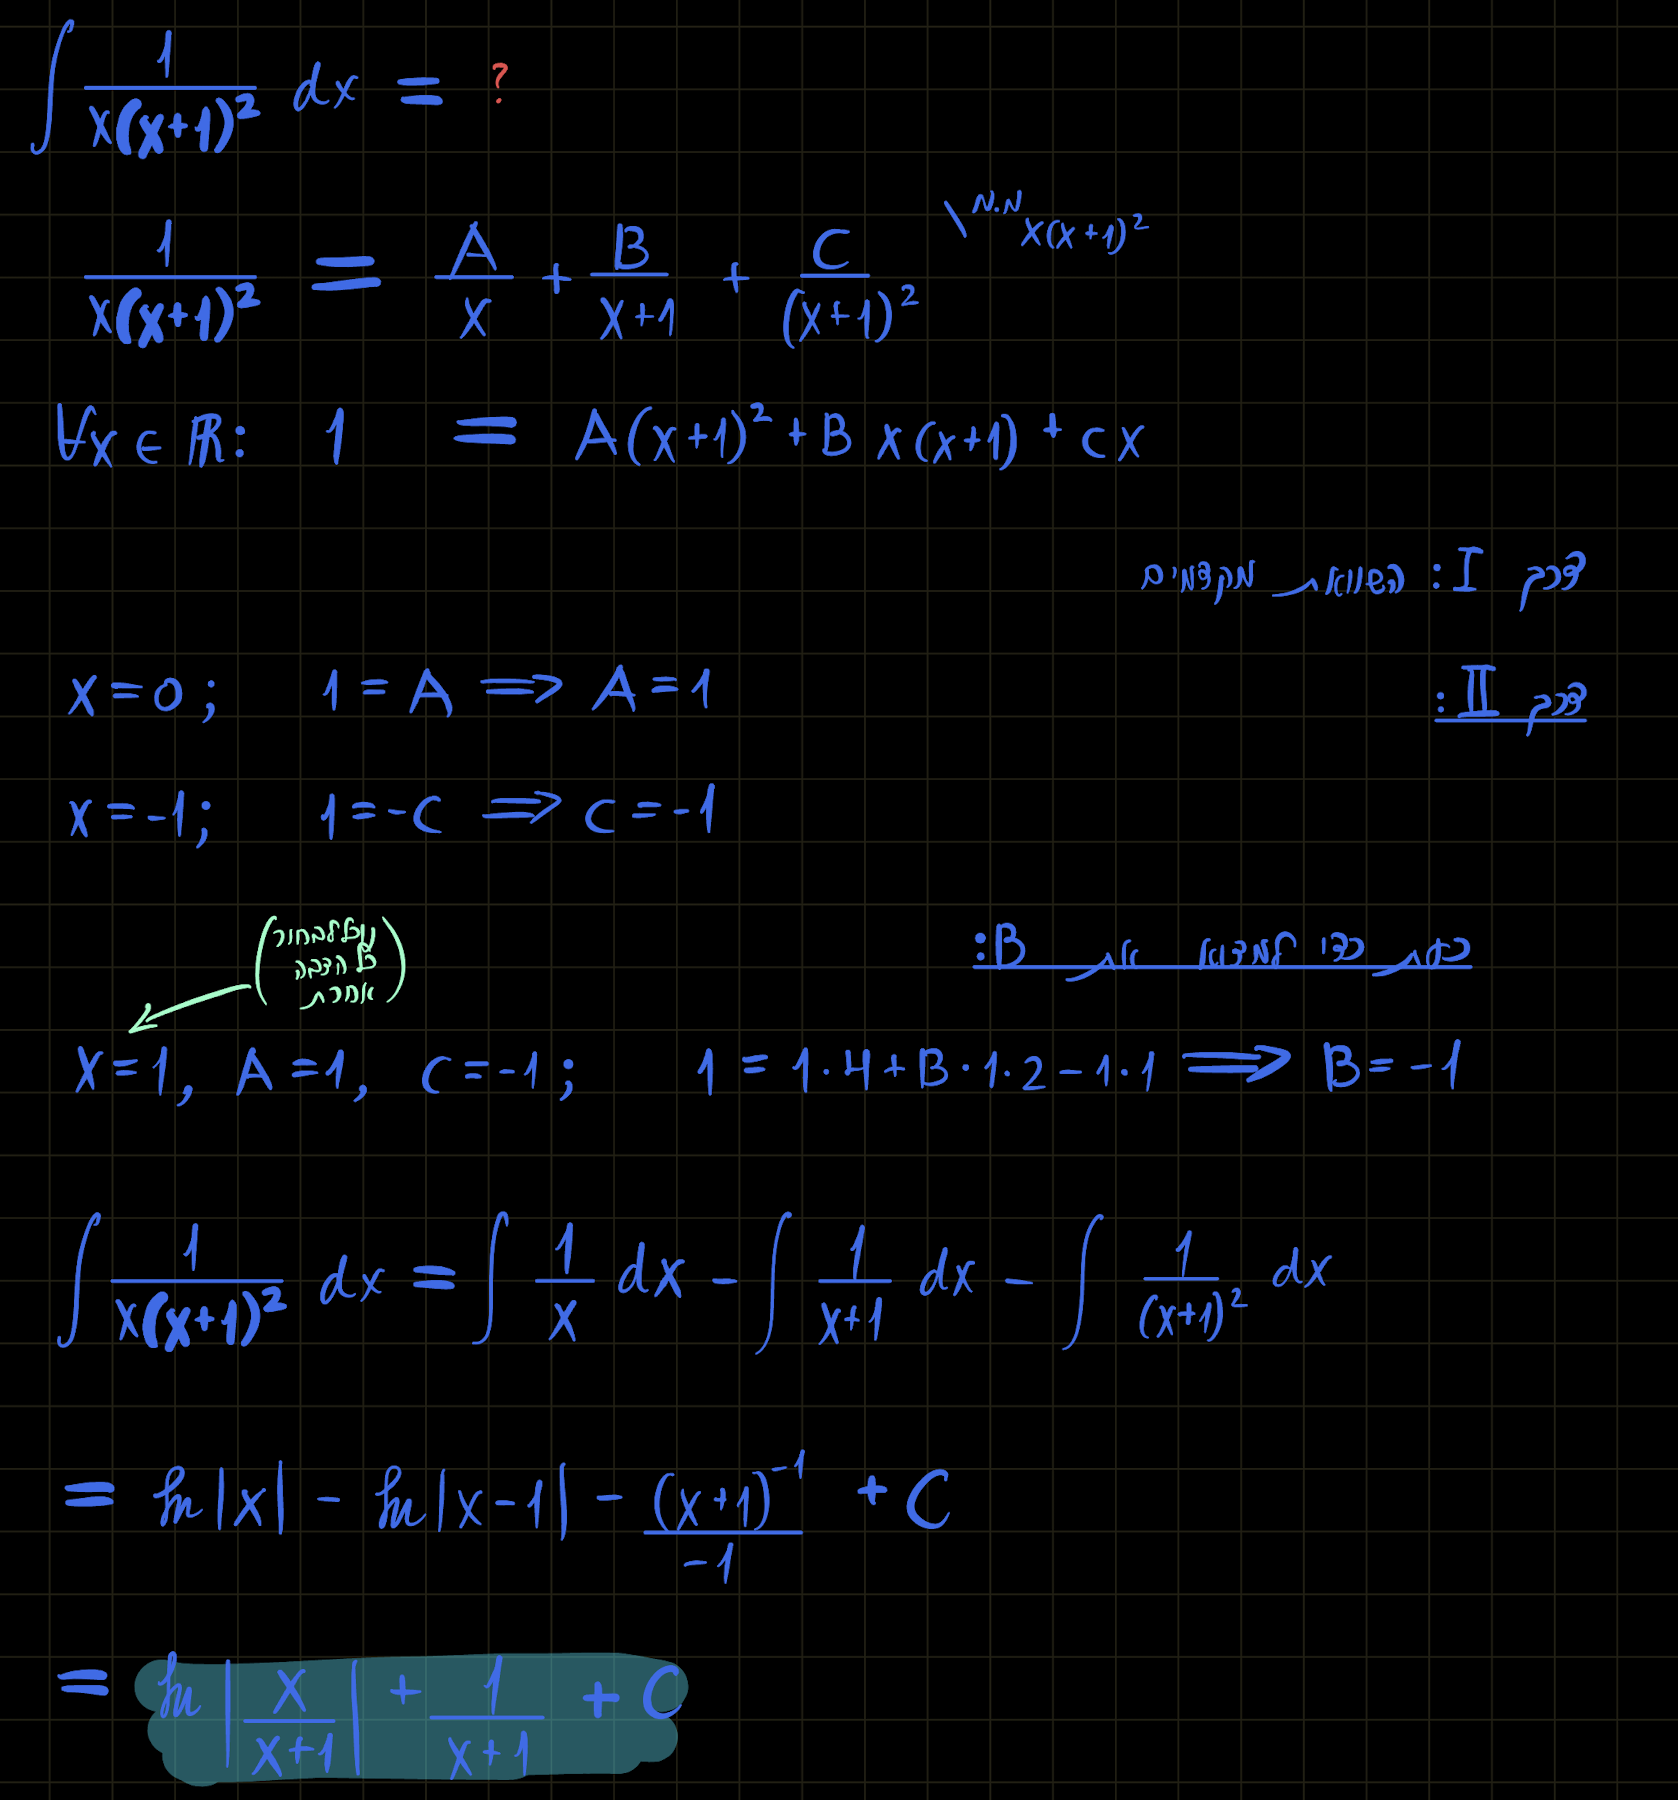 ∫ 1/(x(x+1)²) dx = ?
1/(x(x+1)²) = A/x + B/(x+1) + C/(x+1)² \ מ.מ x(x+1)²
∀x ∈ ℝ: 1 = A(x+1)² + B x(x+1) + cx
דרך I: השוואת מקדמים
דרך II:
x=0; 1=A ⟹ A=1
x=-1; 1=-C ⟹ C=-1
כעת כדי למצוא את B:
(נוכל לבחור
כל הצבה
אחרת)
x=1, A=1, C=-1; 1 = 1·4+B·1·2-1·1 ⟹ B=-1
∫ 1/(x(x+1)²) dx = ∫ 1/x dx - ∫ 1/(x+1) dx - ∫ 1/(x+1)² dx
= ln|x| - ln|x-1| - (x+1)⁻¹/-1 + C
= ln|x/(x+1)| + 1/(x+1) + C